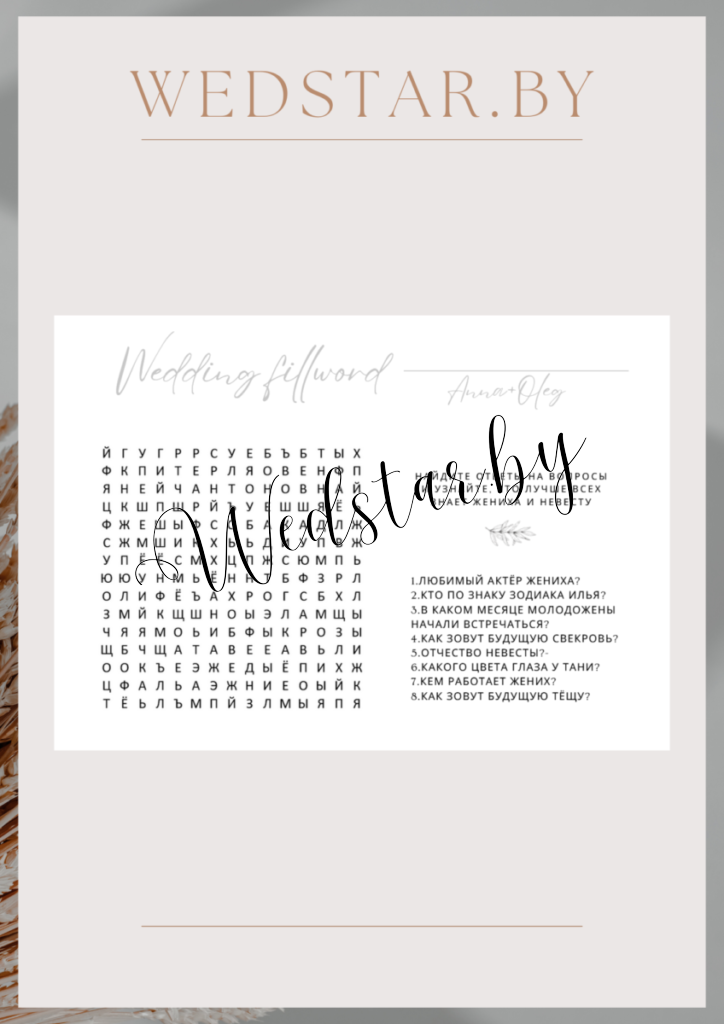 WEDSTAR.BY
Wedding fillword
Anna+Oleg
Wedstar.by
Й Г У Г Р Р С У Е Б Ъ Б Т Ы Х
Ф К П И Т Е Р Л Я О В Е Н Ф П
Я Н Е Й Ч А Н Т О Н О В Н А Й
Ц К Ш П
Ф Ж Е Ш Ы Ф С
С Ж М Ш И
У П Ё Ё С М Х Ц П Ж С Ю М П Ь
Ю Ю У Н М Ь Ё Н Н Т Б Ф З Р Л
О Л И Ф Ё Ъ А Х Р О Г С Б Х Л
З М Й К Щ Ш Н О Ы Э Л А М Щ Ы
Ч Я Я М О Ь И Б Ф Ы К Р О З Ы
Щ Б Ч Щ А Т А В Е Е А В Ь Л И
О О К Ъ Е Э Ж Е Д Ы Ё П И Х Ж
Ц Ф А Л Ь А Э Ж Н И Е О Ы Й К
Т Ё Ь Л Ъ М П Й З Л М Ы Я П Я
НАЙДИТЕ ОТВЕТЫ НА ВОПРОСЫ
И УЗНАЙТЕ, КТО ЛУЧШЕ ВСЕХ
ЗНАЕТ ЖЕНИХА И НЕВЕСТУ
1.ЛЮБИМЫЙ АКТЁР ЖЕНИХА?
2.КТО ПО ЗНАКУ ЗОДИАКА ИЛЬЯ?
3.В КАКОМ МЕСЯЦЕ МОЛОДОЖЕНЫ
НАЧАЛИ ВСТРЕЧАТЬСЯ?
4.КАК ЗОВУТ БУДУЩУЮ СВЕКРОВЬ?
5.ОТЧЕСТВО НЕВЕСТЫ?-
6.КАКОГО ЦВЕТА ГЛАЗА У ТАНИ?
7.КЕМ РАБОТАЕТ ЖЕНИХ?
8.КАК ЗОВУТ БУДУЩУЮ ТЁЩУ?